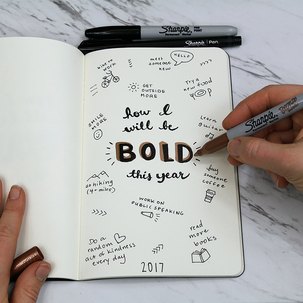 Sharpie
Sharpie Pen
bike to work
meet someone new
HELLO
try new food
GET
OUTSIDE
MORE
SMILE
MORE
how I
will be
BOLD
this year
learn
guitar
Sharpie
buy
someone
COFFEE
go hiking
(4+ miles)
WORK ON
PUBLIC SPEAKING
Do a
random
act of kindness
every day
read
more
books
2017